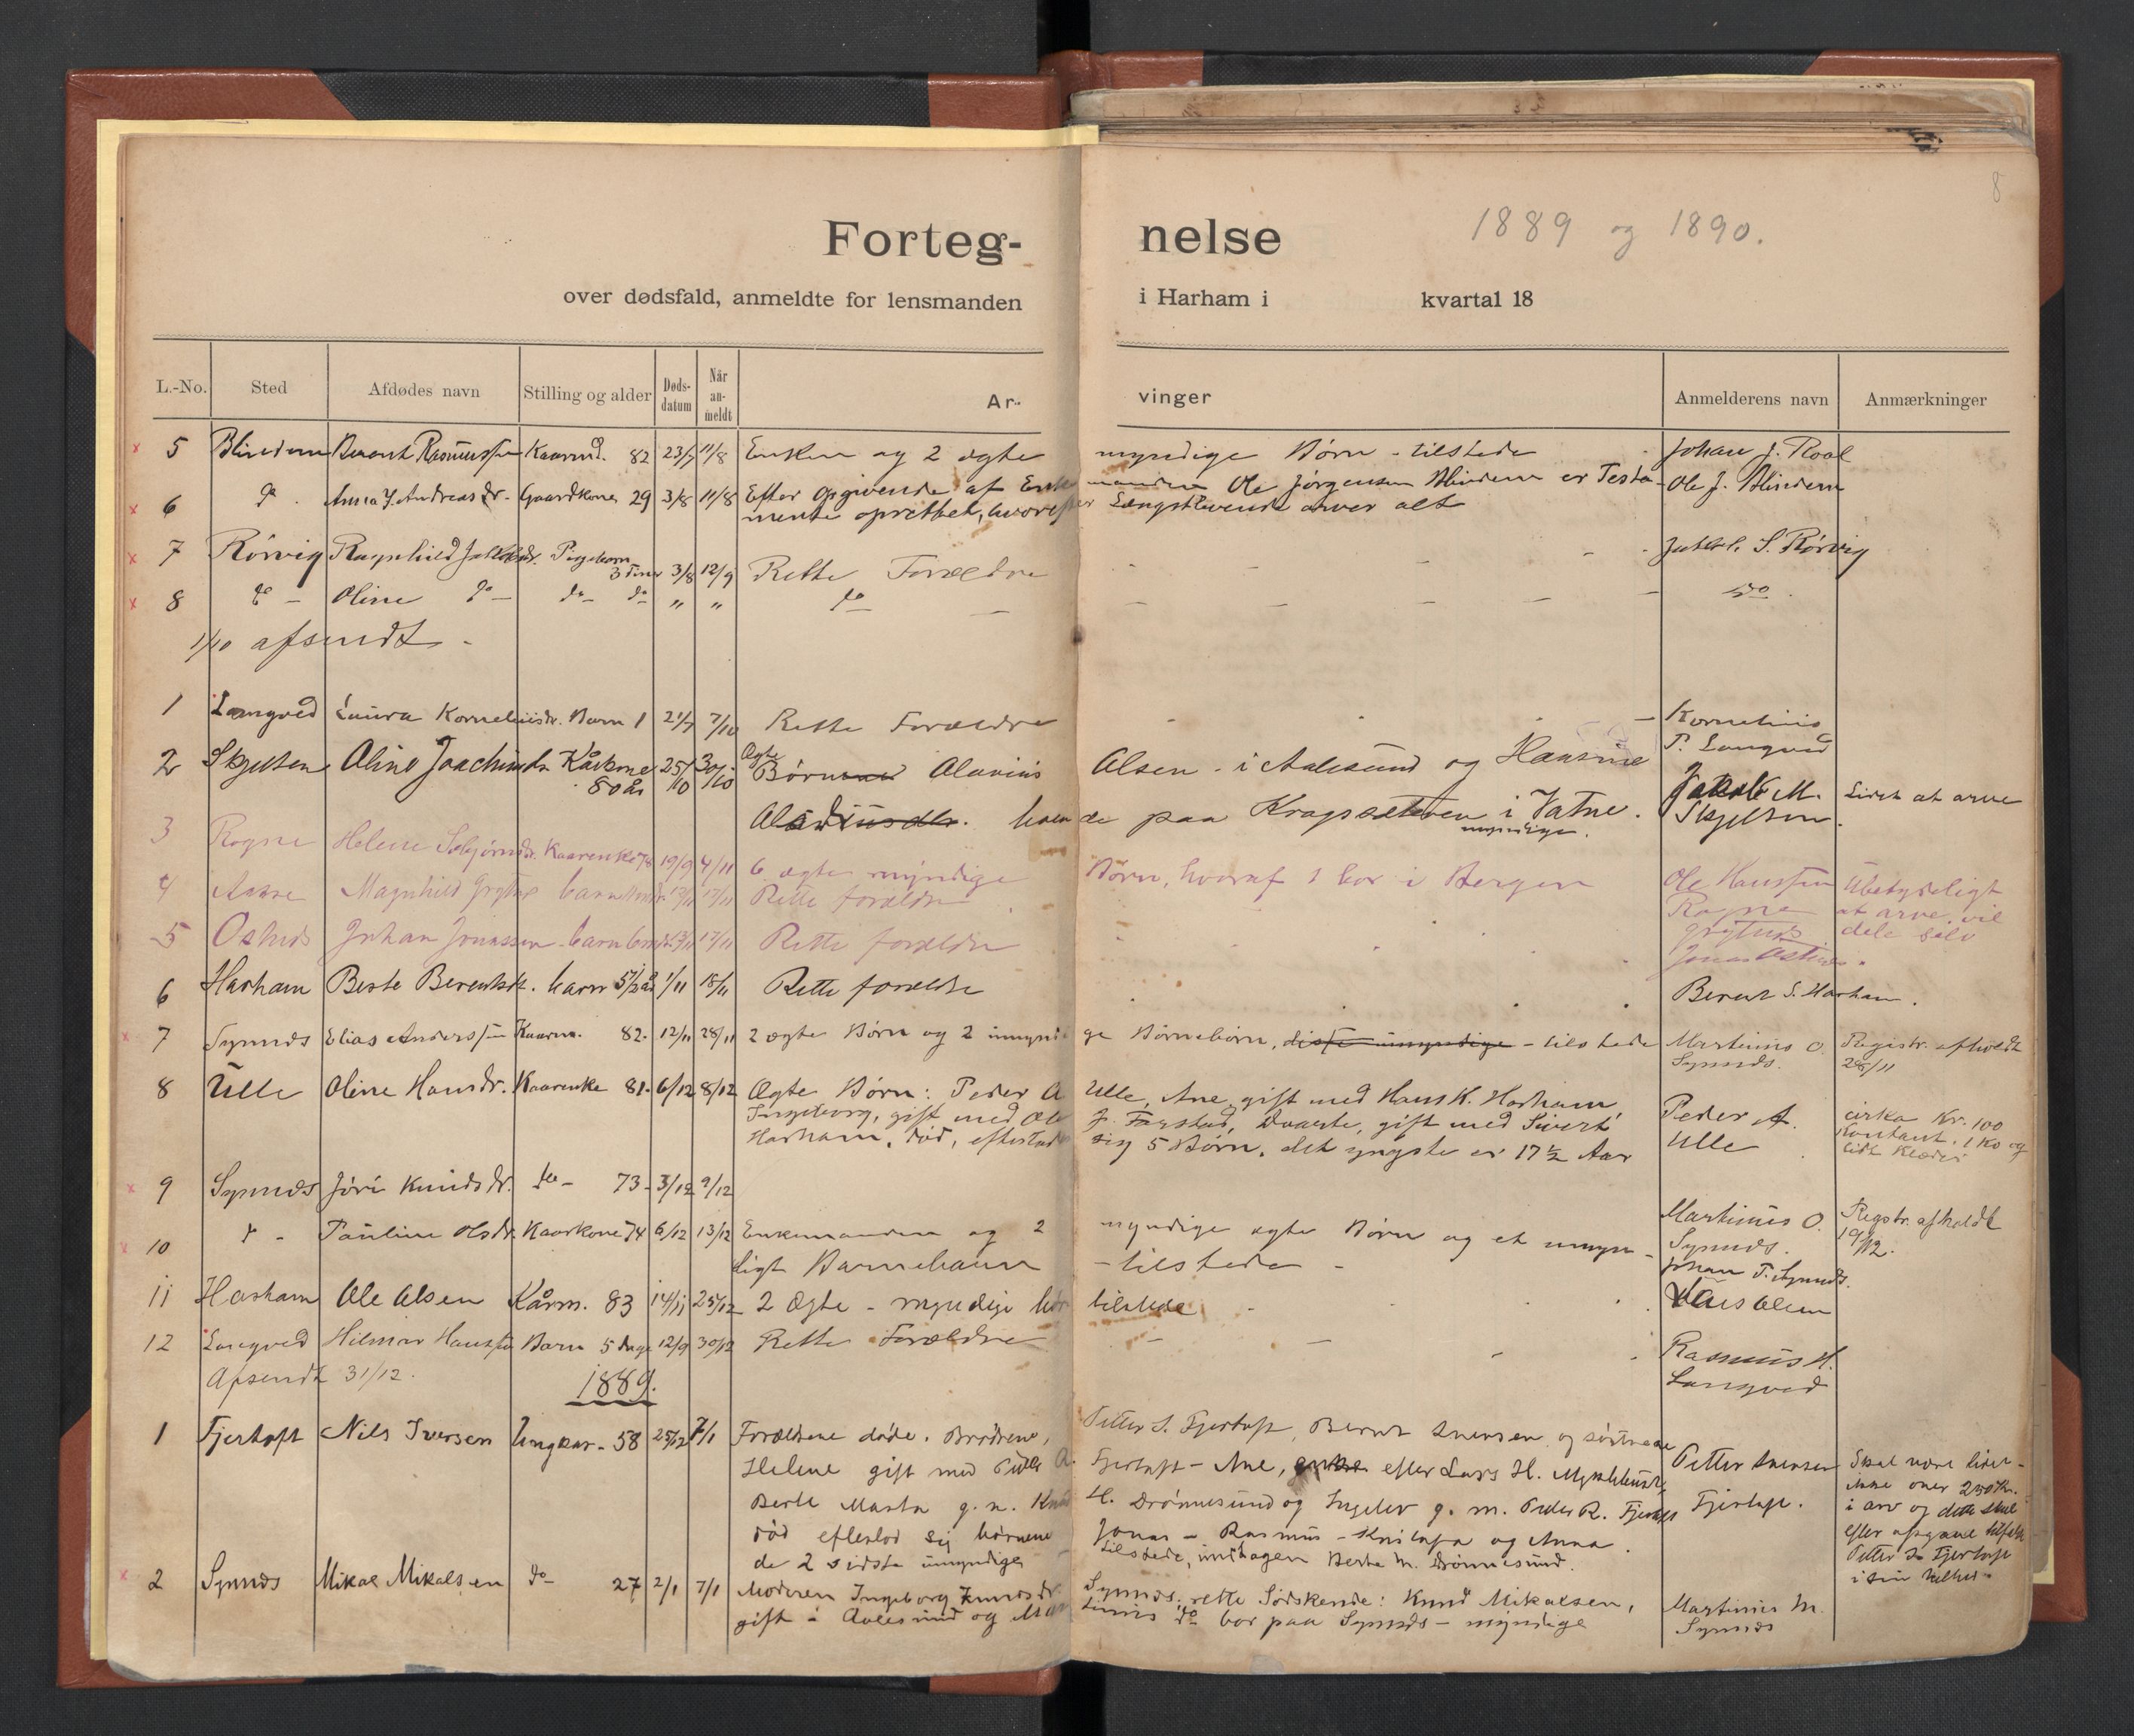 8
1889 og 1890.
Forteg- nelse
over dødsfald, anmeldte for lensmanden i Harham i kvartal 18
L.-No. Sted Afdødes navn Stilling og alder Døds-datum Når an-meldt Ar- vinger Anmelderens navn Anmærkninger
5 Blindem Berent Rasmussen Kaarmd. 82 23/7 11/8 Enken og 2 ægte myndige Børn - tilstede Johan J. Roal
6 do Anna J. Andreasdr. Gaardkone 29 3/8 11/8 Efter Opgivende af Enkemanden Ole Jørgensen Blindem er Testa- Ole J. Blindem
mente oprettet, hvorefter Længstlevende arver alt
7 Rörvig Ragnhild Pigebarn 3 Timer 3/8 12/9 Rette Forældre - - S. Rörvig
8 do - Oline do - do - do " " do - - - - - - do.
1/10 afsendt -
1 Longved Laura Korneliusdr. Barn 1 21/7 7/10 Rette Forældre - Kornelius
P. Longved
2 Skjelten Oline Joachimsdr. Kårkone 25/10 30/10 Ægte Børn Olavius Olsen - i Aalesund og Hansine Jakob M. Lidet at arve
80 år Olavius dtr. boende paa Krogsæteren i Vatne. Skjelten.
myndige.
3 Rogne Helene Sebjørnsdr. Kaarenke 74 19/9 4/11 6 ægte myndige Børn, hvoraf 1 bor i Bergen Ole Hanssen Ubetydeligt
4 Magnhild barn 17/11 Rette forældre Rogne at arve, vil
5 Johan Jonassen barn 17/11 Rette forældre dele selv
Jonas
6 Harham Berte Berentsdr. barn 5 1/2 år 1/11 18/11 Rette forældre . . . Berent S. Harham.
7 Synnes Elias Anderssen Kaarm. 82. 12/11 28/11 2 ægte Børn og 2 umyndige Børnebørn, disse umyndige - tilstede Martinus O. Registr. afholdt
Synnes. 28/11
8 Ulle Oline Hansdr. Kaarenke 81. 6/12 8/12 Ægte Børn: Peder A Ulle, Ane, gift med Hans K. Harham, Peder A. cirka Kr. 100
Ingeborg, gift med Ole J. Farstad, gift med Sivert Ulle Kontant. 1 Ko og
Harham, död, efterlod sig 5 Børn, det yngste er 17 1/2 Aar lidt Klæder
9 Synnes Jöri Knudsdr. do - 73 - 3/12 9/12
10 " - Pauline Olsdr. Kaarkone 74 6/12 13/12 Enkemanden og 2 myndige ægte Børn og et umyn- Martinus O. Regstr. afholdt
ligt Barnebarn - tilstede - Synnes. 19/12.
Johan P. Synnes.
11 Harham Ole Olsen Kårm. 83 14/11 25/12 2 Ægte - myndige bör tilstede - . . . Olsen
12 Longved Hilmar Hanssen Barn 5 Dage 12/9 30/12 Rette Forældre - - - . Rasmus H.
Afsendt 31/12. Longved
1889.
1 Fjertoft Nils Iversen Ungkar - 58 25/12 7/1 Forældrene døde. Brødrene, Petter S. Fjertoft, Bernt Iversen og søstrene Petter Iversen Skal være lidet -
Helene gift med Peder A. Fjertoft - Ane, enke efter Lars H. Myklebust, Fjertoft. ikke over 250 Kr.
Berte Marta g. m. Knud H. Drønnesund og Ingelev g. m. Peder R. Fjertoft i arv og dette skal
död efterlod sig börnene Jonas - Rasmus - og Anna. efter
de 2 sidste umyndige tilstede, undtagen Berte M. Drønnesund. Petter Fjertoft
i sin helhed -
2 Synnes Mikal Mikalsen do - 27 2/1 7/1 Moderen Ingeborg Knudsdr. Synnes, rette Södskende: Knud Mikalsen, Martinus M.
gift i Aalesund og Martinus do bor paa Synnes - myndige Synnes